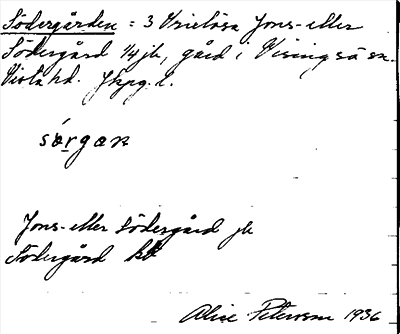 Södergården = 3 Vrixlösa Jons- eller
Södergård 1/4 jb, gård i Visingsö sn.
Vista hd. Jkpg. l.
sǿrgan
Jons- eller Södergård jb
Södergård kb
Alice Petersson 1936